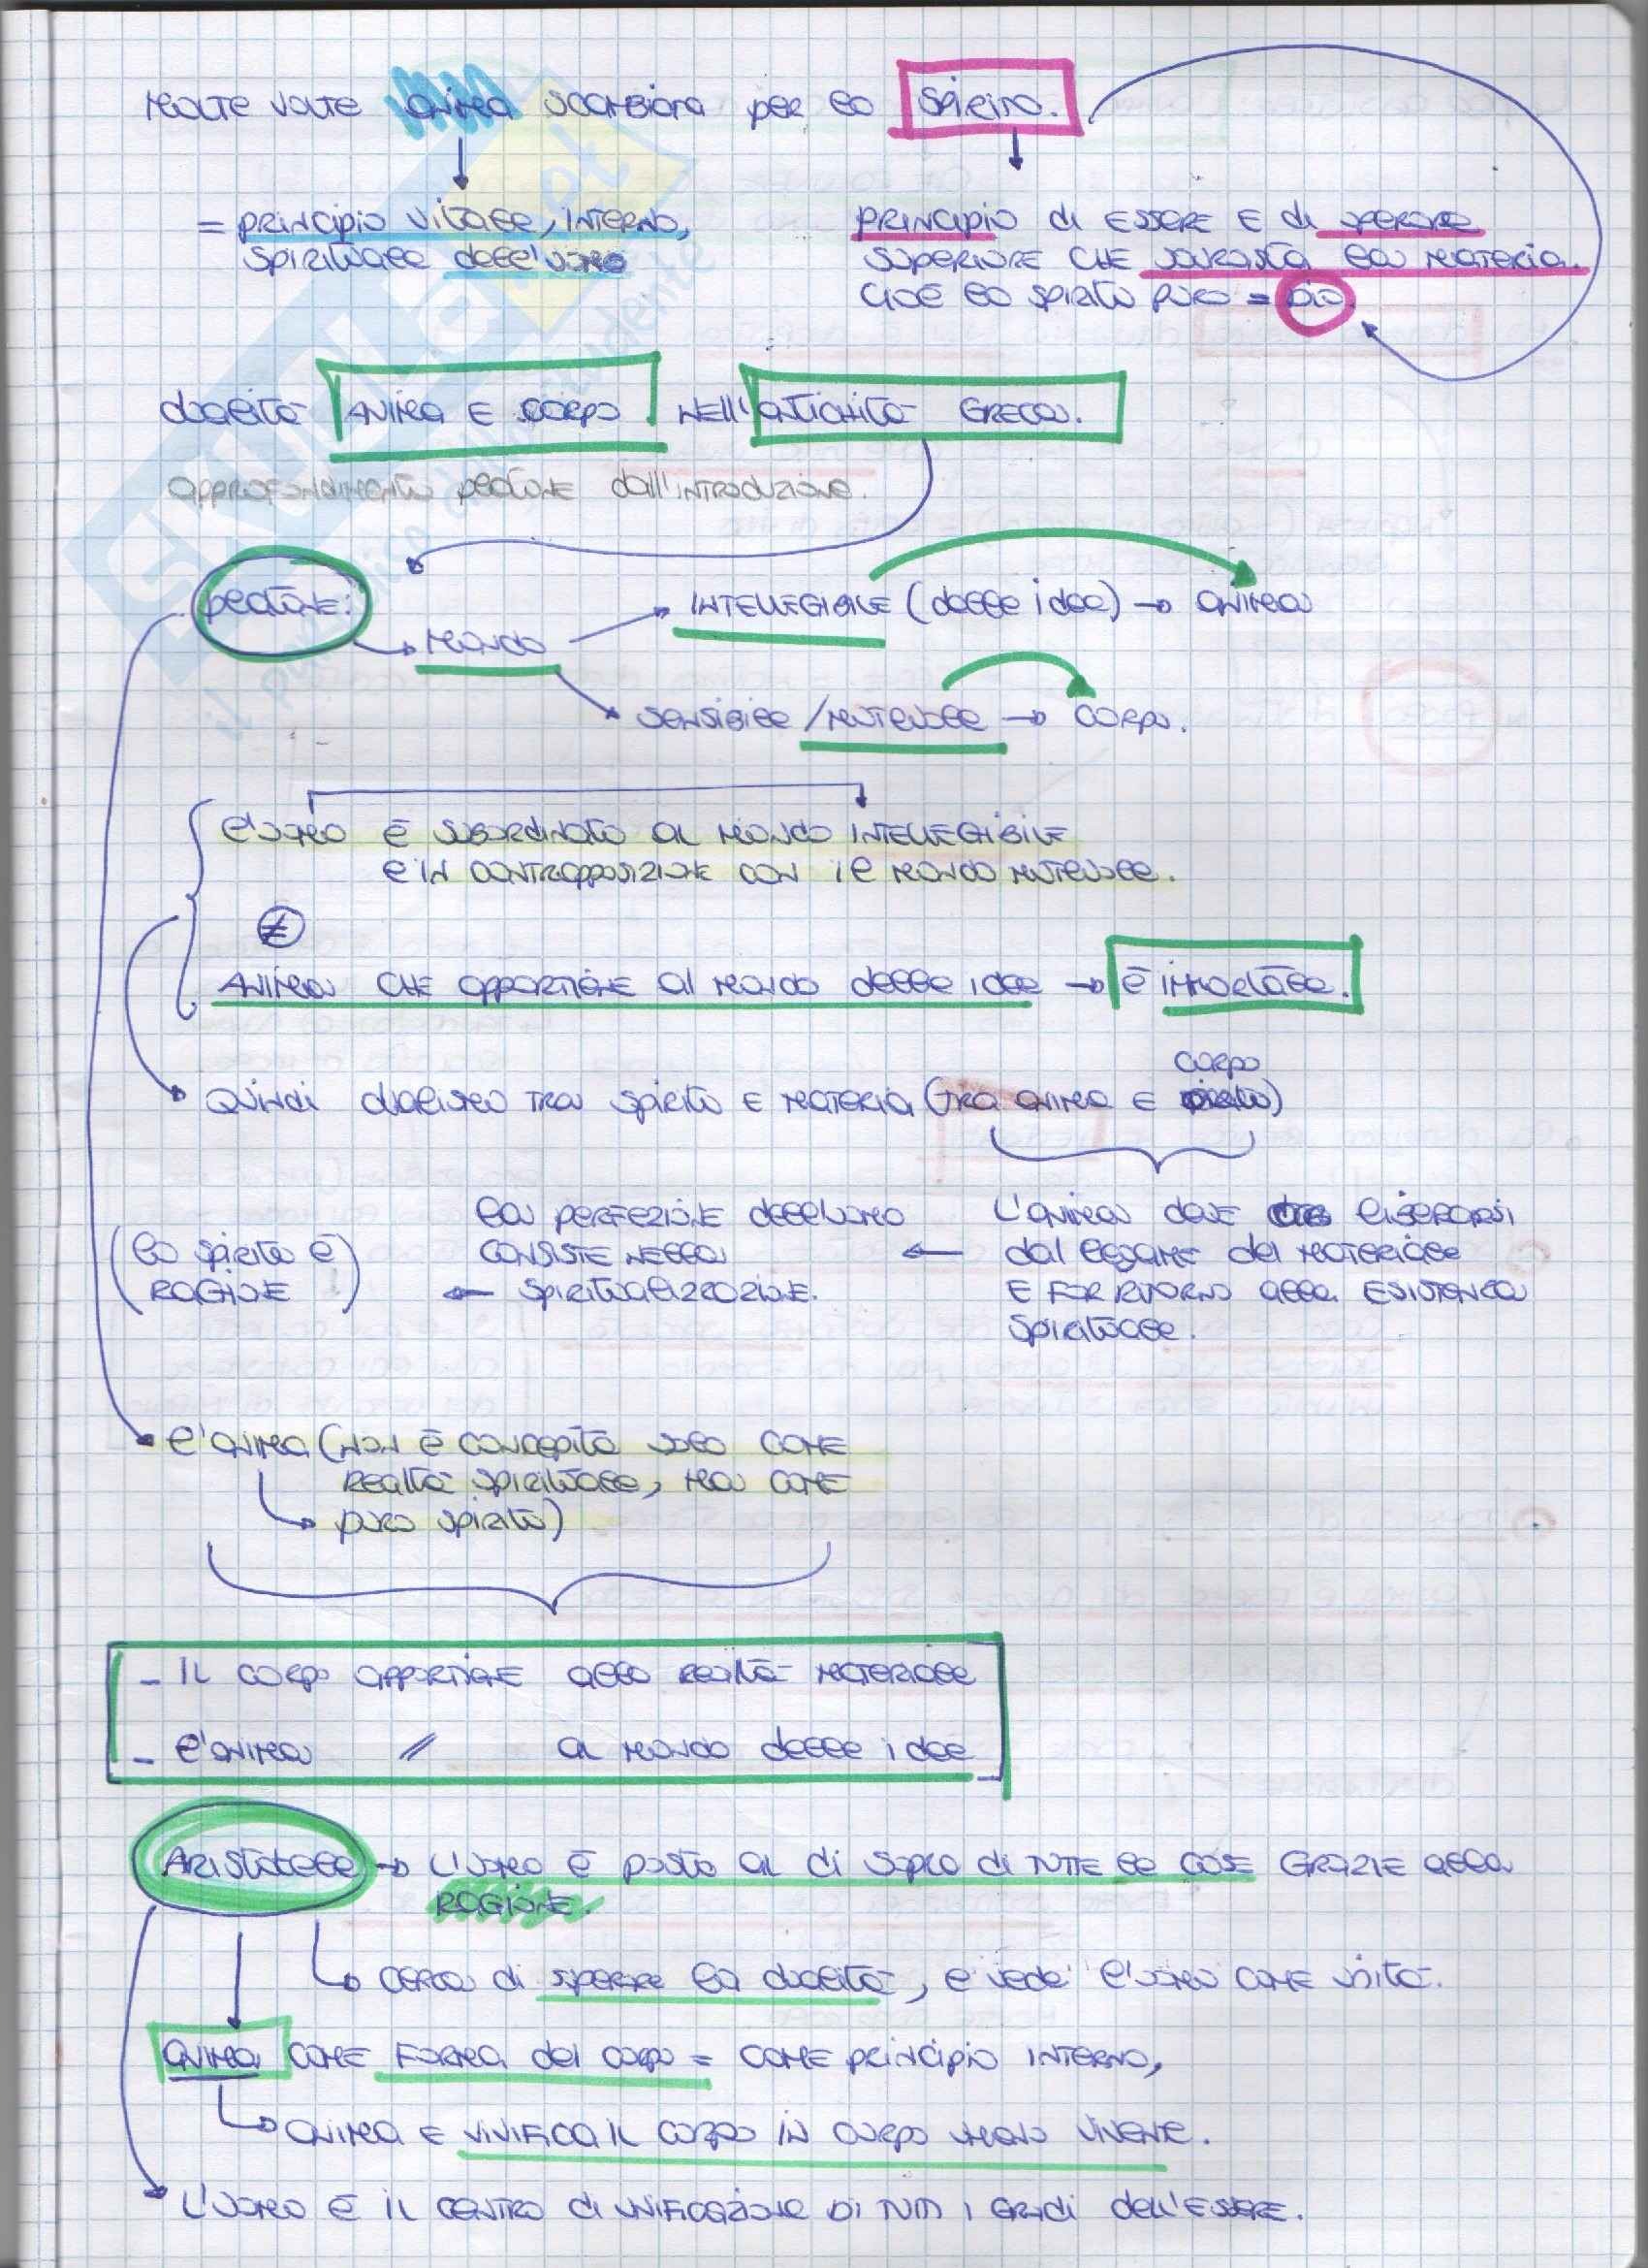 MOLTE VOLTE ANIMA SCAMBIATA PER lo SPIRITO.
= PRINCIPIO VITALE, INTERNO,
SPIRITUALE dell'UOMO
PRINCIPIO di ESSERE E di OPERARE
SUPERIORE CHE SOVRASTA la MATERIA.
CIOÈ lo SPIRITO PURO = DIO.
dualità ANIMA E CORPO NELL'ANTICHITÀ GRECA.
APPROFONDIMENTO PLATONE dall'INTRODUZIONE.
PLATONE:
INTELLEGIBILE (delle idee) → ANIMA
MONDO
SENSIBILE / MUTEVOLE → CORPO.
l'UOMO È SUBORDINATO AL MONDO INTELLEGIBILE
E IN CONTRAPPOSIZIONE CON il MONDO MUTEVOLE.
≠
ANIMA CHE APPARTIENE al MONDO delle idee → È IMMORTALE.
CORPO
QUINDI dualismo TRA SPIRITO E MATERIA (TRA ANIMA E SPIRITO)
(lo SPIRITO È
RAGIONE)
la PERFEZIONE dell'uomo
CONSISTE NELLA
← SPIRITUALIZZAZIONE.
L'ANIMA DEVE liberarsi
← dal legame del materiale
E FAR RITORNO alla ESISTENZA
SPIRITUALE.
l'ANIMA (NON È CONCEPITA SOLO COME
REALTÀ SPIRITUALE, MA COME
PURO SPIRITO)
- IL CORPO APPARTIENE alla REALTÀ MATERIALE
- l'ANIMA // AL MONDO delle idee
ARISTOTELE → L'UOMO È POSTO AL di SOPRA di TUTTE le COSE GRAZIE alla
RAGIONE.
CERCA di SUPERARE la dualità, E vede l'UOMO COME UNITÀ.
ANIMA COME FORMA del CORPO = COME PRINCIPIO INTERNO,
ANIMA E VIVIFICA IL CORPO IN CORPO UMANO VIVENTE.
L'UOMO È IL CENTRO di UNIFICAZIONE DI TUTTI I GRADI dell'ESSERE.